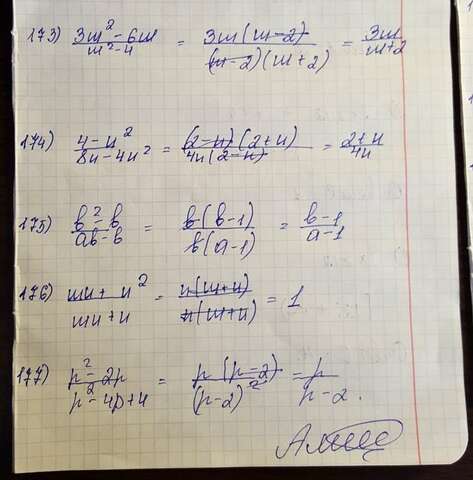 173) 3m² - 6m / m² - 4 = 3m(m-2) / (m-2)(m+2) = 3m / m+2
174) 4 - n² / 8n - 4n² = (2-n)(2+n) / 4n(2-n) = 2+n / 4n
175) b² - b / ab - b = b(b-1) / b(a-1) = b-1 / a-1
176) mn + n² / mn + n = n(m+n) / n(m+n) = 1
177) p² - 2p / p² - 4p + 4 = p(p-2) / (p-2)² = p / p-2.